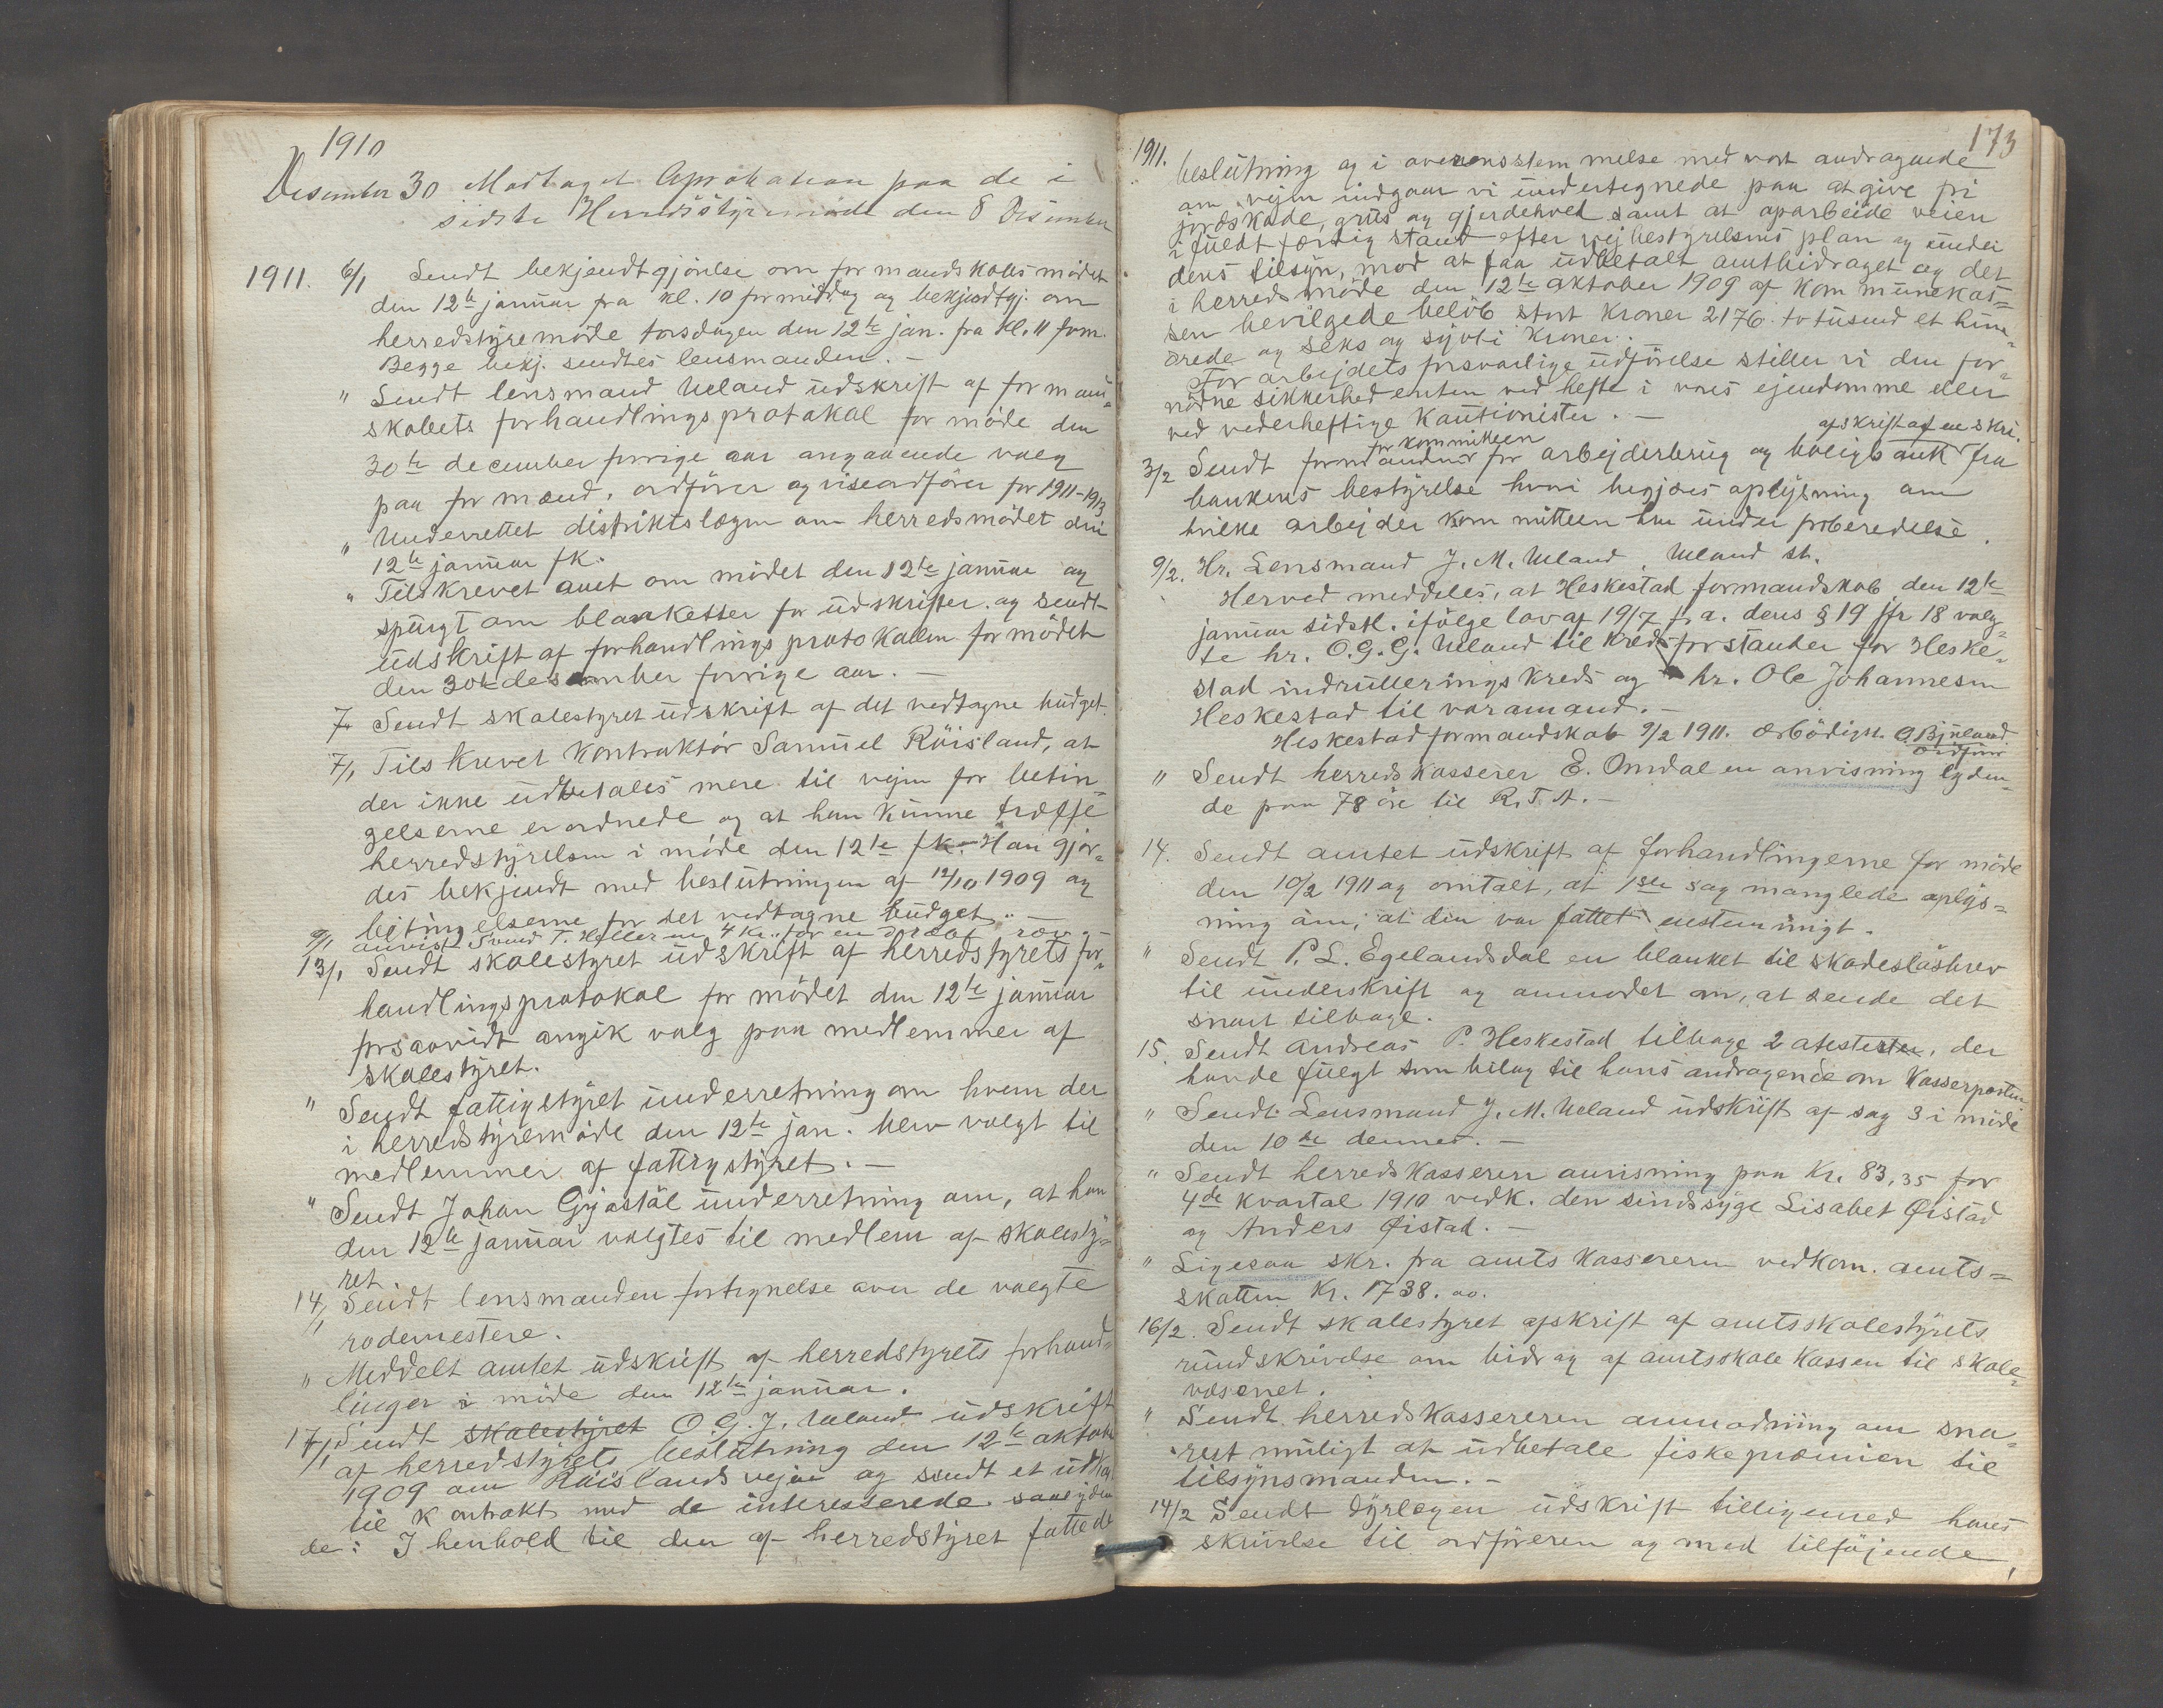 1910
Desember 30 Modtaget Aprobation paa de i
sidste Herredsstyremöde den 8 Desember
1911. 6/1 Sendt bekjendtgjörelse om formandskabsmödet
den 12te januar fra kl. 10 formiddag og bekjendtgj. om
herredstyremöde torsdagen den 12te jan. fra kl. 11 form.
Begge bekj. sendtes lensmanden. —
" Sendt lensmand Ueland udskrift af formand-
skabets forhandlingsprotokol for möde den
30te december forrige aar angaaende valg
paa formænd, ordförer og viseordförer for 1911-1913
" Underrettet distriktslægen om herredsmödet den
12te januar fk.
" Tilskrevet amt om mödet den 12te januar og
spurgt om blanketter for udskrifter og sendt
udskrift af forhandlingsprotokollen for mödet
den 30te desember forrige aar. —
7 Sendt skolestyret udskrift af det vedtagne budget.
7/1 Tilskrevet kontraktör Samuel Röisland, at
der ikke udbetales mere til vejen för betin-
gelserne er ordnede og at han kunne træffe
herredstyrelsen i möde den 12te fk. Han gjor-
des bekjendt med beslutningen af 12/10 1909 og
betingelserne for det vedtagne budget. —
9/1 anvist Svend T. 4 Kr. for en dræbt ræv —
13/1 Sendt skolestyret udskrift af herredstyrets for-
handlingsprotokol for mödet den 12te januar
forsaavidt angik valg paa medlemmer af
skolestyret.
" Sendt fattigstyret underretning om hvem der
i herredstyremöde den 12te jan. blev valgt til
medlemmer af fattigstyret. —
" Sendt Johan Gyastöl underretning om, at han
den 12te januar valgtes til medlem af skolesty-
ret.
14/1 Sendt lensmanden fortegnelse over de valgte
rodemestere.
" Meddelt amtet udskrift af herredstyrets forhand-
linger i möde den 12te januar.
17/1 Sendt skolestyret O. G. J. Ueland udskrift
af herredstyrets beslutning den 12te oktober
1909 om Röislandsvejen og sendt et udkast
til kontrakt med de interesserede saalyden
de: I henhold til den af herredstyret fattede
173
1911. beslutning og i overensstemmelse med vort andragende
om vejen indgaar vi undertegnede paa at give fri
jordskade, grus og gjerdehold samt at oparbeide veien
i fuldt færdig stand efter vejbestyrelsens plan og under
dens tilsyn, mod at faa udbetalt amtbidraget og det
i herredsmöde den 12te oktober 1909 af kommunekas-
sen bevilgede belöb stort kroner 2176. totusend et hun-
drede og seks og sytti kroner.
For arbejdets forsvarlige udförelse stiller vi den for-
nödne sikkerhed enten ved hefte i vores ejendomme eller
ved vederheftige kautionister. —
3/2 Sendt formanden for kommitteen for arbejderbrug og boligbank afskrift af en skri. fra
bankens bestyrelse hvori begjæres oplysning om
hvilke arbejder kommitteen har under forberedelse.
9/2. Hr. Lensmand J. M. Ueland, Ueland st.
Herved meddeles, at Heskestad formandskab den 12te
januar sidstl. ifölge lov af 19/7 f. a. dens § 19 jfr 18 valg-
te hr. O. G. G. Ueland til kredsforstander for Heske-
stad indrulleringskreds og hr. Ole Johannesen
Heskestad til varamand. —
Heskestad formandskab 9/2 1911. ærbödigst. O Bjuland
ordförer
" Sendt herredskasserer E. Omdal en anvisning lyden-
de paa 78 öre til R. T. A. —
14. Sendt amtet udskrift af forhandlingerne for möde
den 10/2 1911 og omtalt, at 1ste sag manglede oplys-
ning om, at den var fattet enstemmigt.
" Sendt P. L. Egelandsdal en blanket til skadeslösbrev
til underskrift og anmodet om, at sende det
snart tilbage.
15. Sendt Andreas P. Heskestad tilbage 2 atester, der
havde fulgt som bilag til hans andragende om kasserposten
" Sendt Lensmand J. M. Ueland udskrift af sag 3 i möde
den 10de dennes. —
" Sendt herredskasseren anvisning paa Kr. 83,35 for
4de kvartal 1910 vedk. den sindssyge Lisabet Øistad
og Anders Øistad. —
" Ligesaa skr. fra amtskasseren vedkom. amts-
skatten Kr. 1738.00.
16/2. Sendt skolestyret afskrift af amtsskolestyrets
rundskrivelse om bidrag af amtsskolekassen til skole-
væsenet.
" Sendt herredskassereren anmodning om sna-
rest muligt at udbetale fiskepræmien til
tilsynsmanden. —
14/2 Sendt dyrlegen udskrift tilligemed hans
skrivelse til ordföreren og med tilföjende